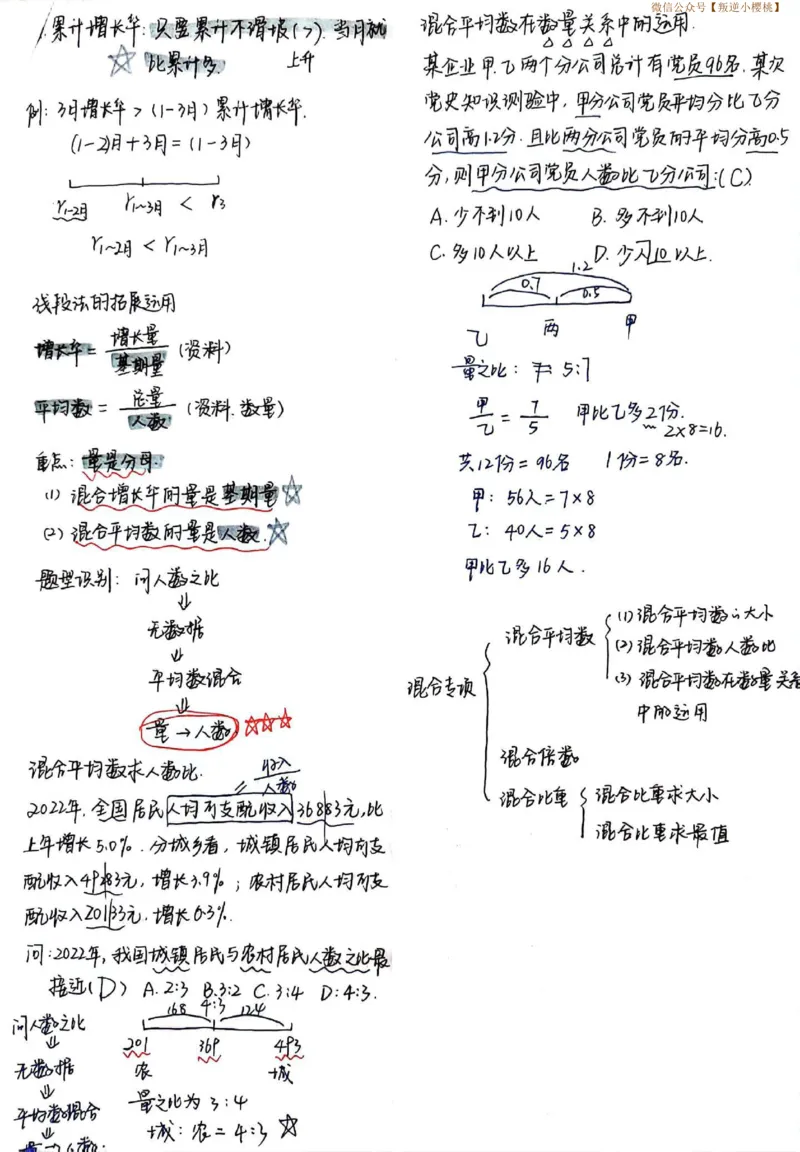 微信公众号【叛逆小樱桃】
1.累计增长率:只要累计不滑坡(>).当月就
上升
比累计多.
例:3月增长率>(1-3月)累计增长率.
(1-2)月+3月=(1-3月)
r1-2月 r1~3月 < r3
r1~2月 < r1~3月
线段法的拓展运用
增长率=增长量/基期量 (资料)
平均数=总量/人数 (资料.数量)
重点:量是分母.
(1) 混合增长率的量是基期量
(2) 混合平均数的量是人数.
题型识别: 问人数之比
无数据
平均数混合
量→人数
混合平均数求人数比.
收入/人数
2022年,全国居民人均可支配收入36883元,比
上年增长5.0%.分城乡看,城镇居民人均可支
配收入49283元,增长3.9%;农村居民人均可支
配收入20133元.增长6.3%.
问:2022年,我国城镇居民与农村居民人数之比最
接近(D) A.2:3 B.3:2 C.3:4 D:4:3.
问人数之比
无数据
平均数混合
量→人数.
168 4:3 124
201 369 493
农 城
量之比为 3:4
城:农=4:3
混合平均数在数量关系中的运用.
某企业甲.乙两个分公司总计有党员96名.某次
党史知识测验中,甲分公司党员平均分比乙分
公司高1.2分.且比两分公司党员的平均分高0.5
分,则甲分公司党员人数比乙分公司:(C)
A.少不到10人 B.多不到10人
C.多10人以上 D.少10以上.
1.2
0.7 0.5
乙 两 甲
量之比: 5:7
甲/乙=7/5 甲比乙多2份.
2×8=16.
共12份=96名 1份=8名.
甲: 56人=7×8
乙: 40人=5×8
甲比乙多16人.
混合专项
混合平均数
(1)混合平均数的大小
(2)混合平均数人数比
(3)混合平均数在数量关系
中的运用
混合倍数
混合比重
混合比重求大小
混合比重求最值